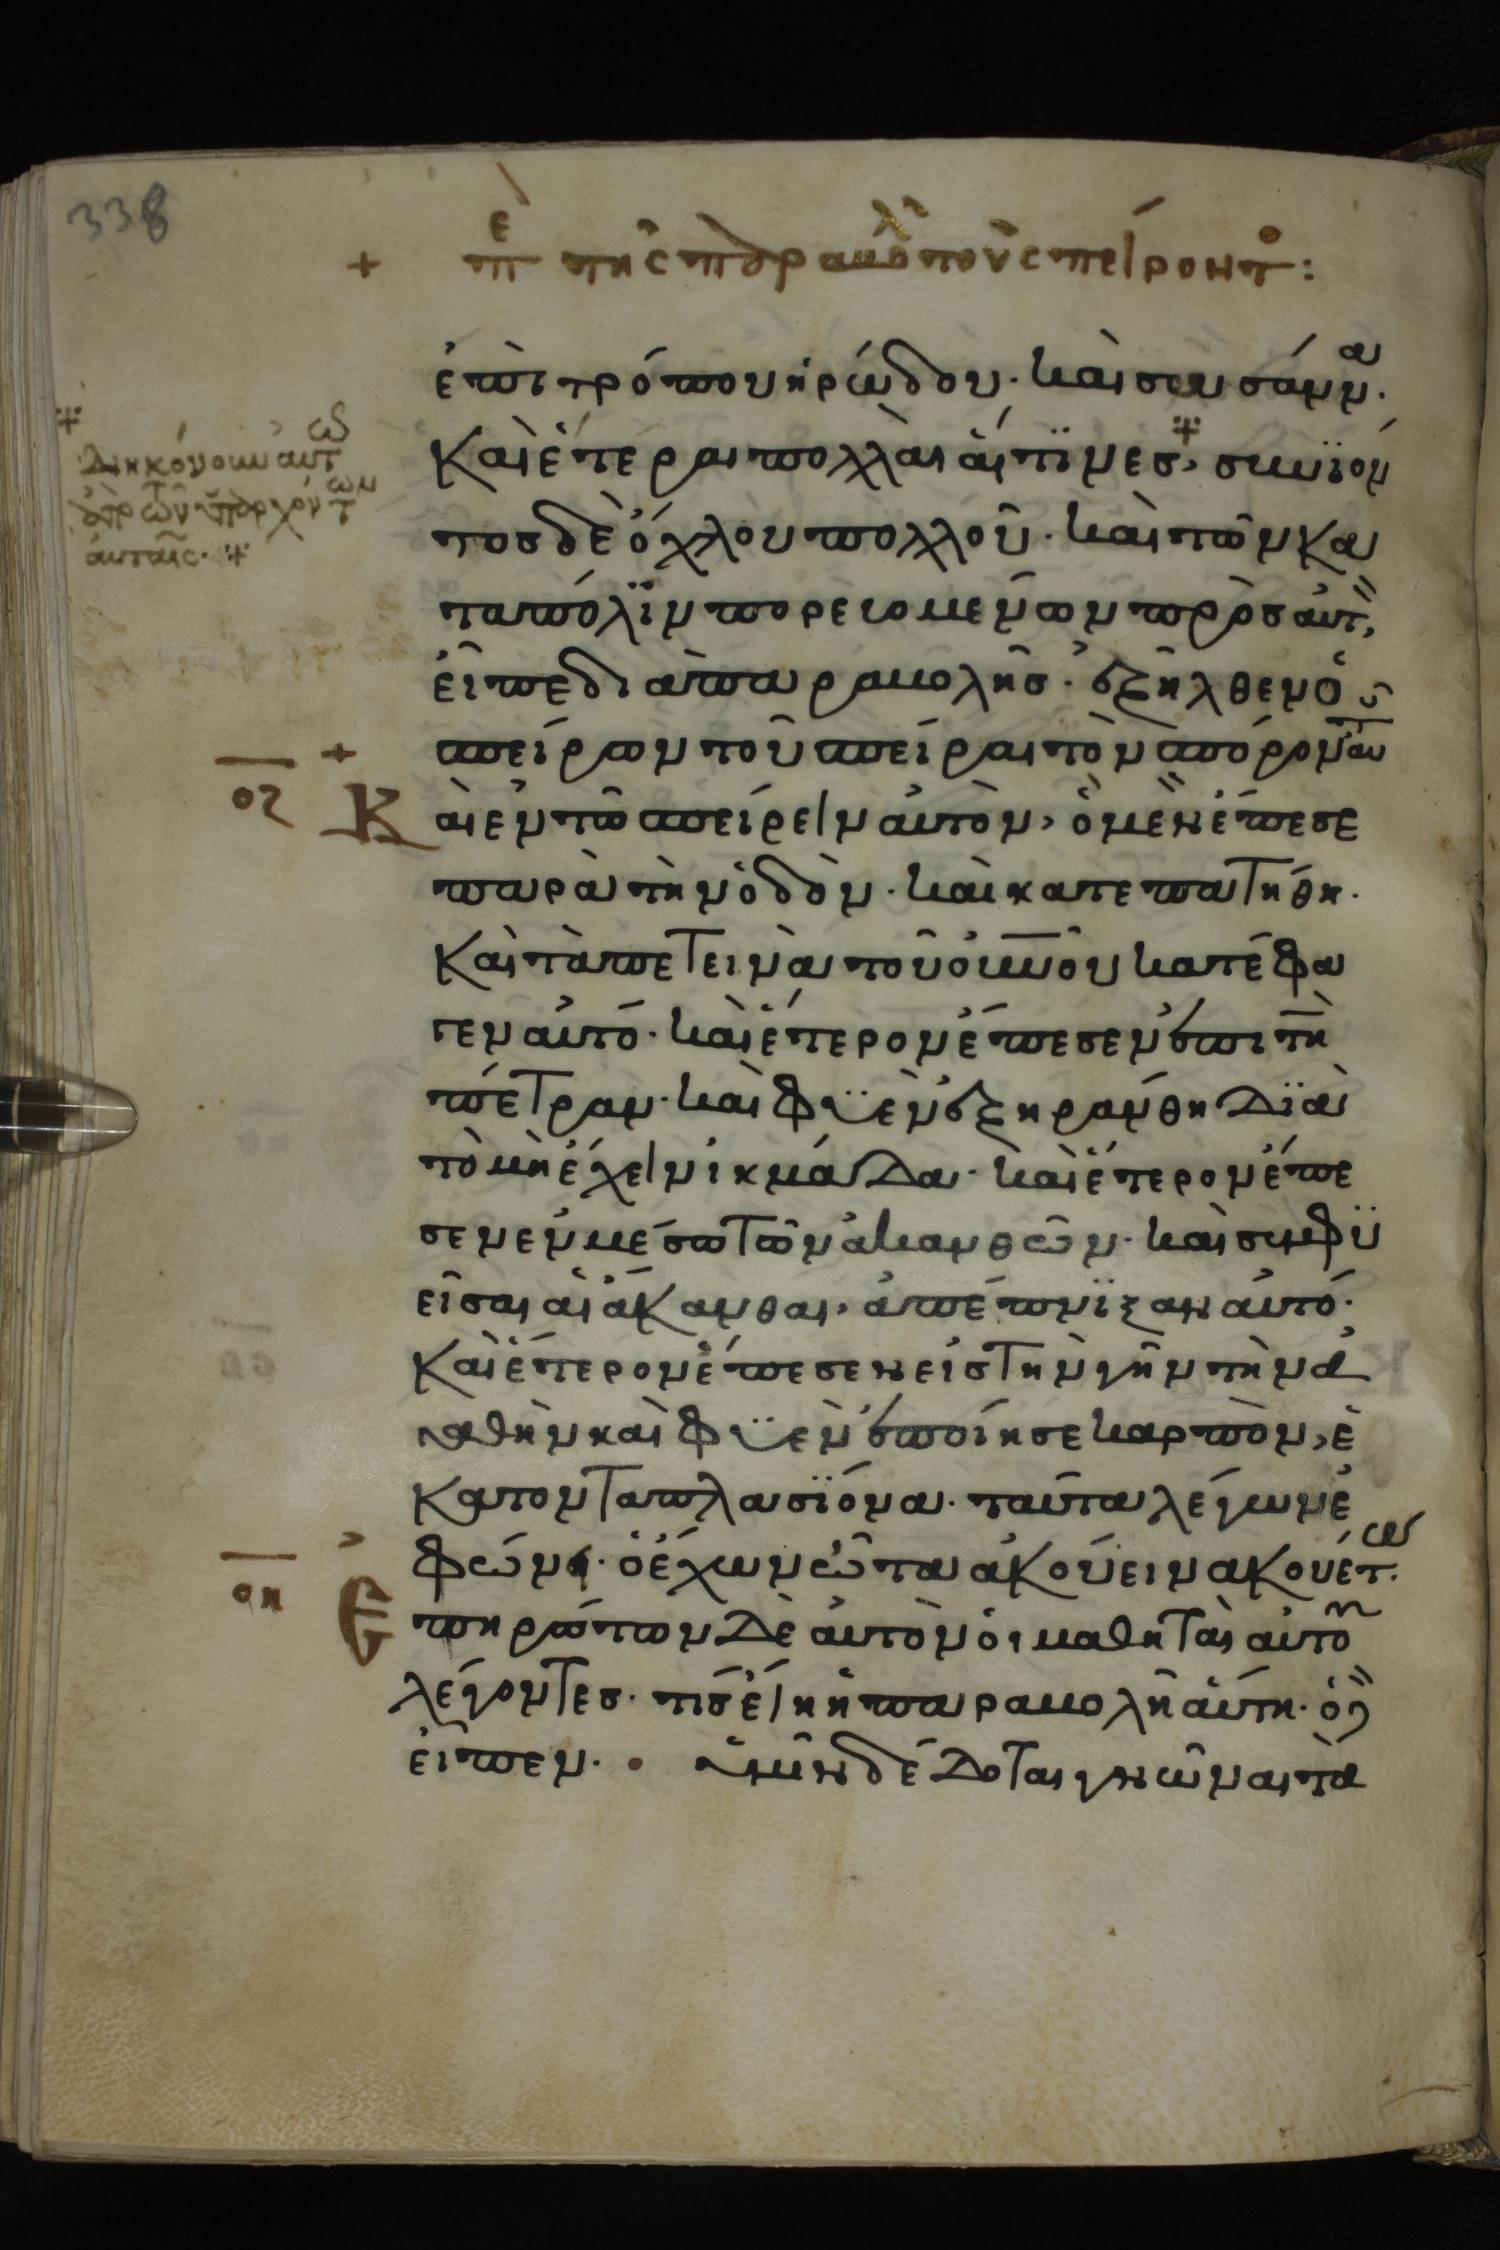 338
+ πε της παραβολ του σπείροντο :
ἐπιτρόπου ἡρώδου · καὶ σουσάνν α ·
Καὶ ἕτεραι πολλαὶ αἵτϊνες, συνϊόν
τοσ δὲ ὄχλου πολλοῦ · καὶ τῶν κα
τα πόλϊν πορευομένων πρὸσ αὐτ,
εἶπε δια παραβολῆσ · ἐξῆλθεν ὁ
σπείρων τοῦ σπεῖραι τὸν σπόρον αυτου
+ ος Κ
αὶ ἐν τῶ σπείρειν αὐτὸν, ὃ μὲν ἔπεσε
παρὰ τὴν ὁδὸν · καὶ κατεπατήθη ·
Καὶ τὰ πετεινὰ τοῦ οὐνοῦ κατέφα
γεν αὐτό · καὶ ἕτερον ἔπεσεν ἐπι τὴ
πέτραν · καὶ φϋὲν ἐξηράνθη Δϊὰ
τὸ μὴ ἔχειν ἰκμάδα · καὶ ἕτερον ἔπε
σεν ἐν μέσω τῶν ἀκανθῶν · καὶ συμφϋ
εῖσαι αἱ ἄκανθαι, ἀπέπνϊξαν αὐτό ·
Καὶ ἕτερον ἔπεσεν εἰσ τὴν γῆν τὴν ἀ
γαθὴν καὶ φϋὲν ἐποίησε καρπὸν, ἑ
κατονταπλασϊόνα · ταῦτα λέγων ἐ
φώνει · ὁ ἔχων ὦτα ἀκούειν ἀκουέτω ·
οη Ἐ
πηρώτων Δὲ αὐτὸν οἱ μαθηταὶ αὐτο
λέγοντεσ · τίσ εἴη ἡ παραβολὴ αὕτη · ὁ δ
εἶπεν · ὑμῖν δέδοται γνῶναι τὰ
Διηκόνουν αὐτ ω
ἐκ τῶν ὑπαρχόντ ων
αὐταῖς ·